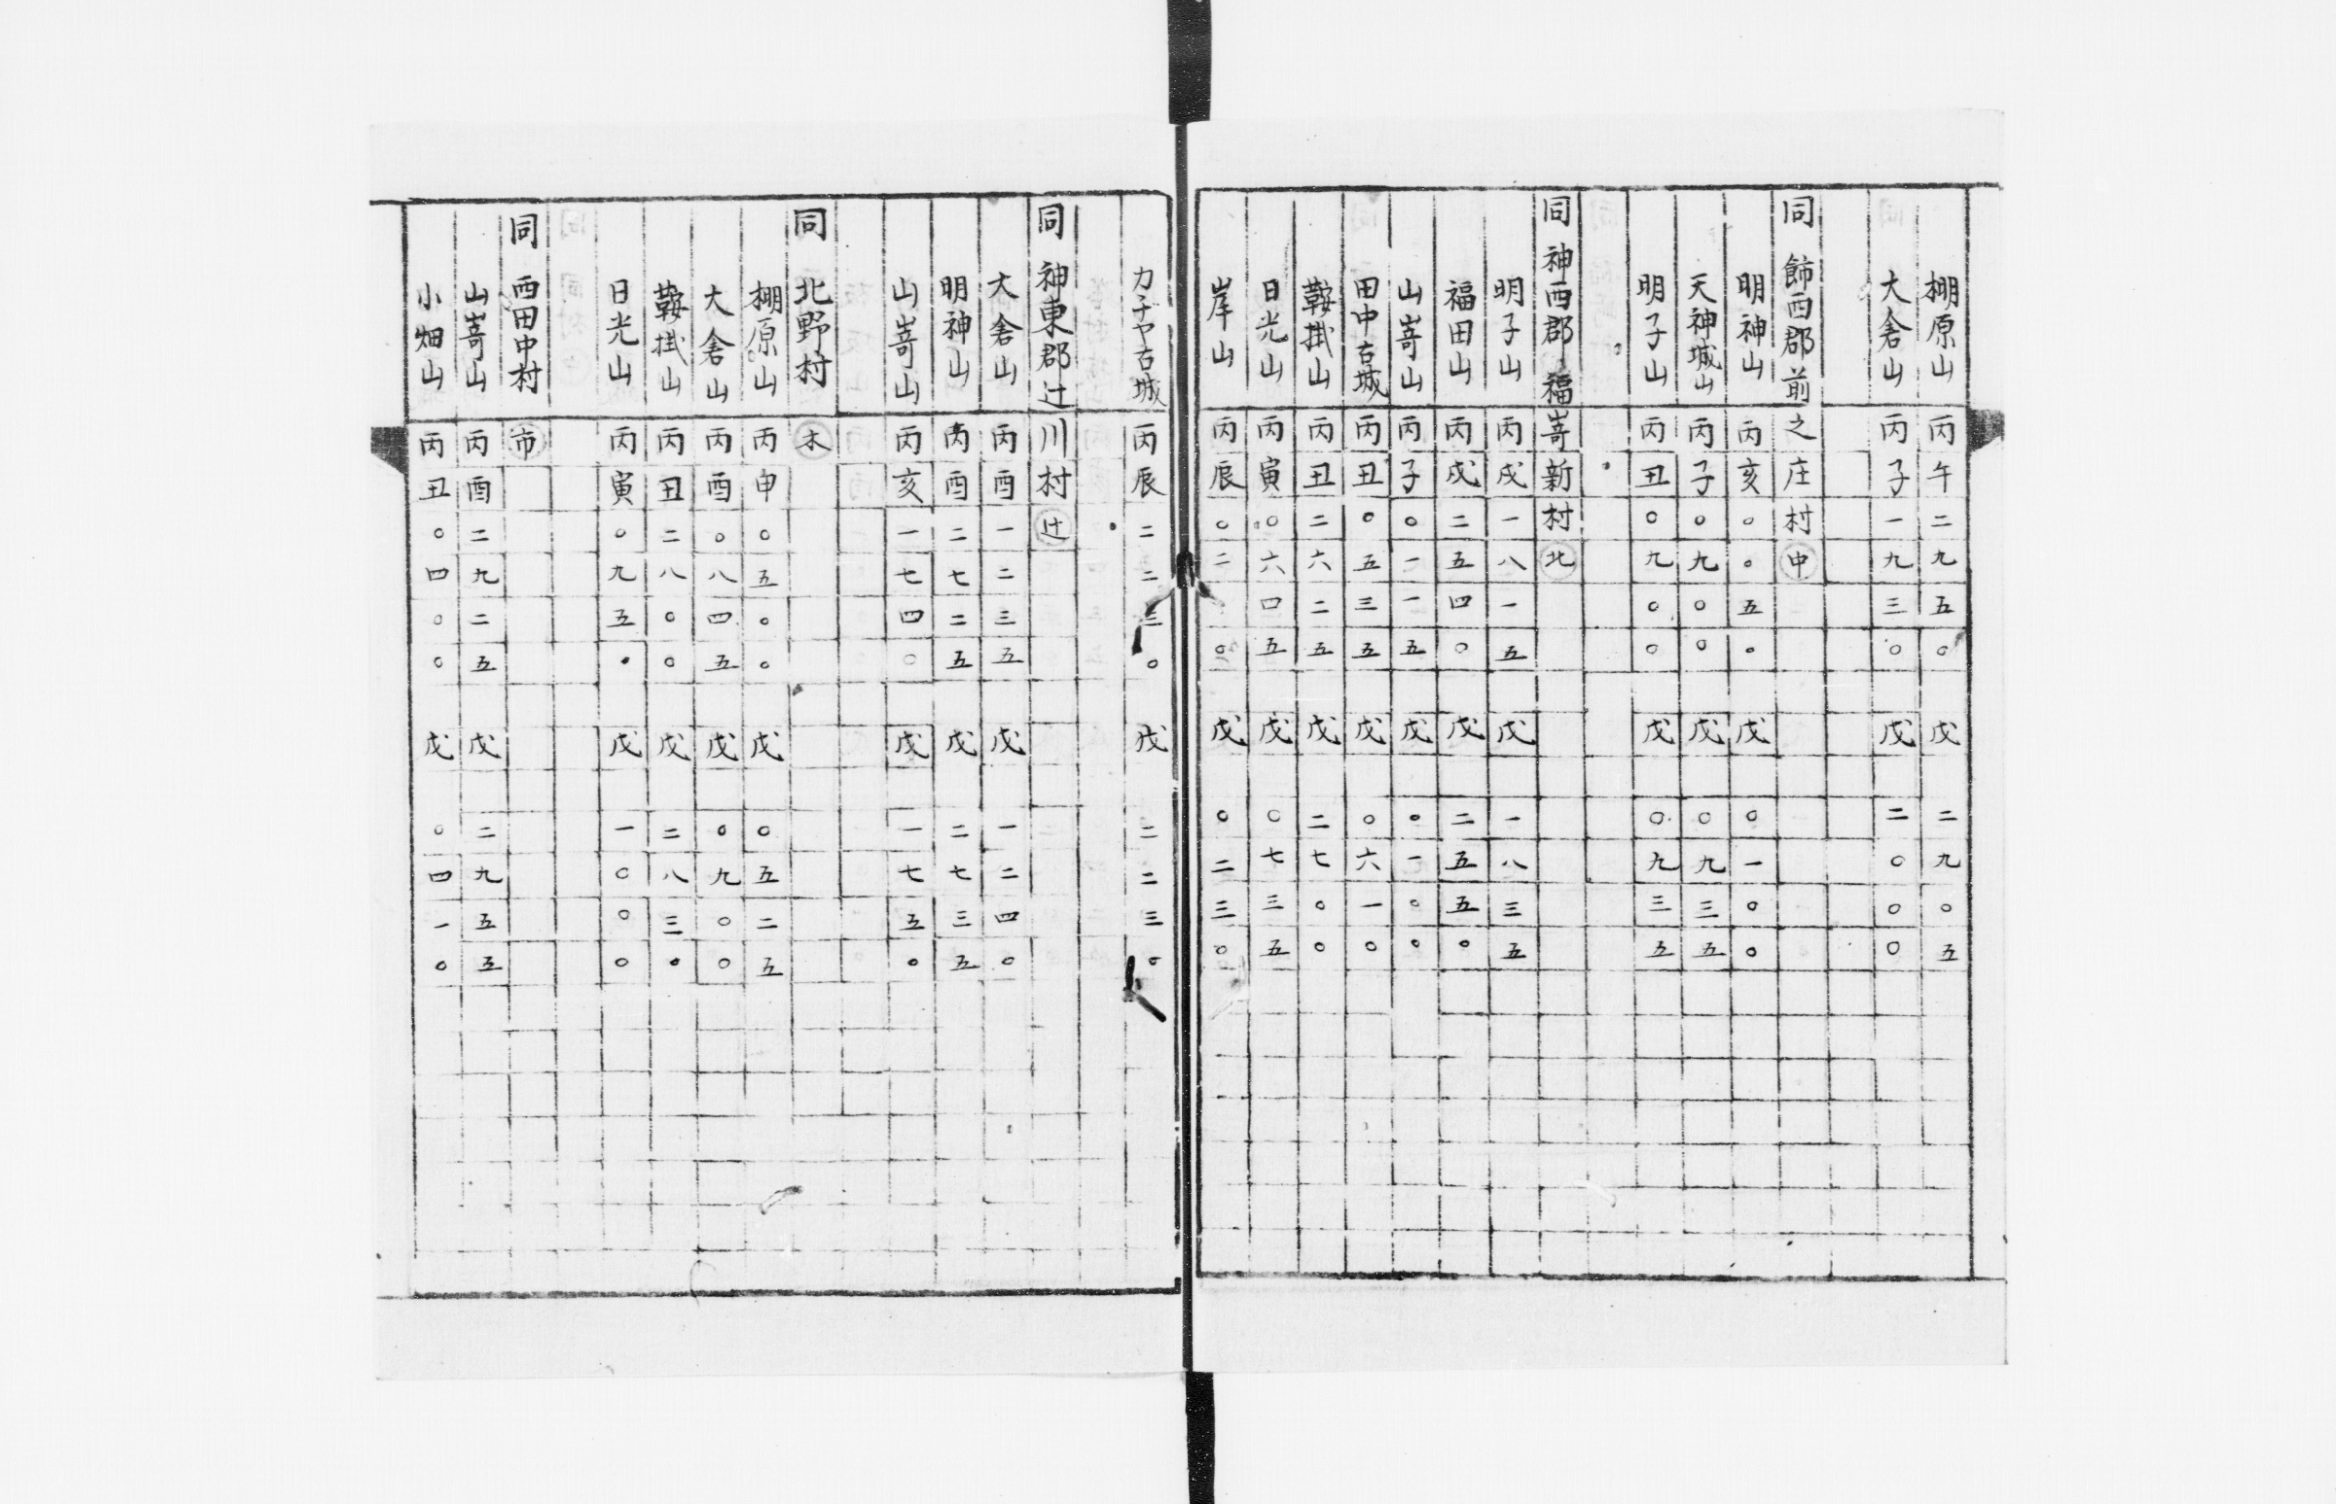 棚原山 丙午二九五〇 戊 二九〇五
大倉山 丙子一九三〇 戊 二〇〇〇
同 飾西郡前之庄村 中
明神山 丙亥〇〇五〇 戊 〇一〇〇
天神城山 丙子〇九〇〇 戊 〇九三五
明子山 丙丑〇九〇〇 戊 〇九三五
同 神西郡福嵜新村 北
明子山 丙戌一八一五 戊 一八三五
福田山 丙戌二五四〇 戊 二五五〇
山嵜山 丙子〇一一五 戊 〇一〇〇
田中古城 丙丑〇五三五 戊 〇六一〇
鞍掛山 丙丑二六二五 戊 二七〇〇
日光山 丙寅〇六四五 戊 〇七三五
岸山 丙辰〇二〇 戊 〇二三〇
カ子ヤ古城 丙辰二二三〇 戊 二二三〇
同 神東郡辻川村 辻
大倉山 丙酉一二三五 戊 一二四〇
明神山 丙酉二七二五 戊 二七三五
山嵜山 丙亥一七四〇 戊 一七五〇
同 北野村 木
棚原山 丙申〇五〇〇 戊 〇五二五
大倉山 丙酉〇八四五 戊 〇九〇〇
鞍掛山 丙丑二八〇〇 戊 二八三〇
日光山 丙寅〇九五〇 戊 一〇〇〇
同 西田中村 市
山嵜山 丙酉二九二五 戊 二九五五
小畑山 丙丑〇四〇〇 戊 〇四一〇